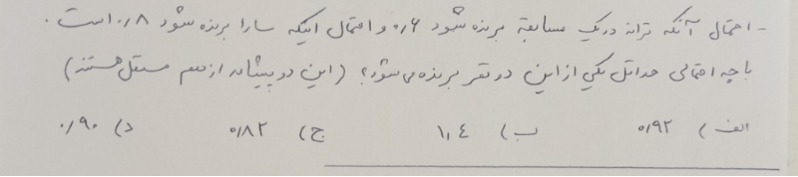 - احتمال آنکه ترانه در یک مسابقه برنده شود ۰٫۶ و احتمال اینکه سارا برنده شود ۰٫۸ است.
با چه احتمالی حداقل یکی از این دو نفر برنده می شود؟ (این دو پیشامد از هم مستقل هستند)
الف) ۰٫۹۲ ب) ۱٫۴ ج) ۰٫۸۲ د) ۰٫۹۰